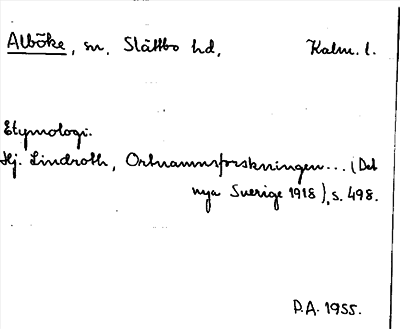 Alböke, sn, Slättbo hd, Kalm. l.
Etymologi.
Hj. Lindroth, Ortnamnsforskningen... (Det
nya Sverige 1918), s. 498.
D.A. 1955.